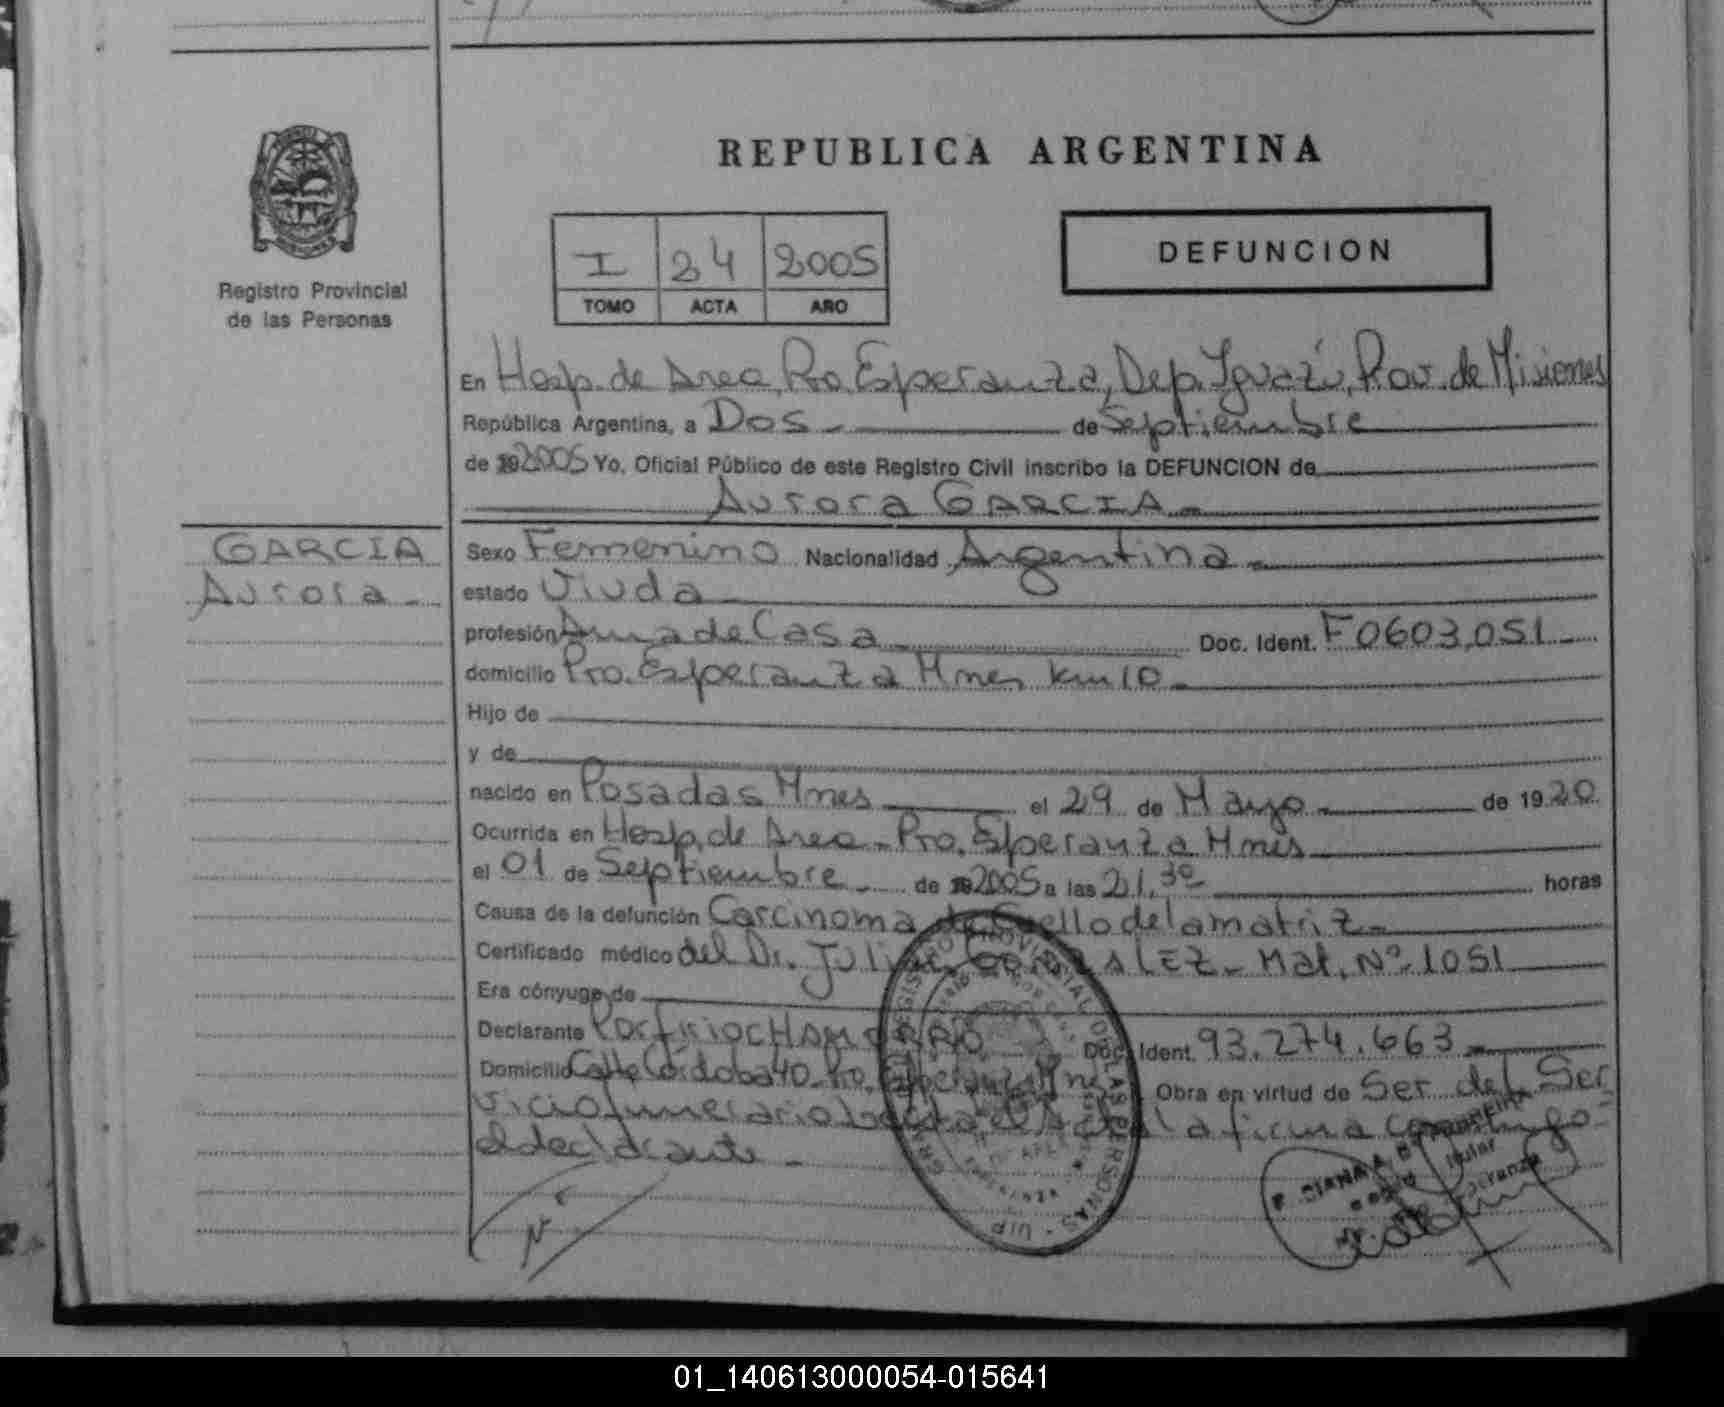 REPUBLICA ARGENTINA
Registro Provincial
de las Personas
I 24 2005
TOMO ACTA AÑO
DEFUNCION
En Hosp. de Area, Pto. Esperanza, Dep. Iguazú, Prov. de Misiones
República Argentina, a Dos de Septiembre
de 19 2005 Yo, Oficial Público de este Registro Civil inscribo la DEFUNCION de
Aurora GARCIA
GARCIA
Aurora
Sexo Femenino Nacionalidad Argentina
estado Viuda
profesión Ama de Casa Doc. Ident. F0603.051
domicilio Pto. Esperanza Mnes km 10
Hijo de
y de
nacido en Posadas Mnes el 29 de Mayo de 1920
Ocurrida en Hosp. de Area - Pto. Esperanza Mnes
el 01 de Septiembre de 19 2005 a las 21,30 horas
Causa de la defunción Carcinoma de Cuello de la matriz
Certificado médico del Dr. GONZALEZ - Mat. Nº 1051
Era cónyuge de
Declarante Porfirio CHAMORRO Doc. Ident. 93.274.663
Domicilio Calle Córdoba 40 Pto. Esperanza Mnes Obra en virtud de Ser del Ser
vicio funerario el Acta la oficina conmigo
el declarante
REGISTRO PROVINCIAL DE LAS PERSONAS
01_140613000054-015641